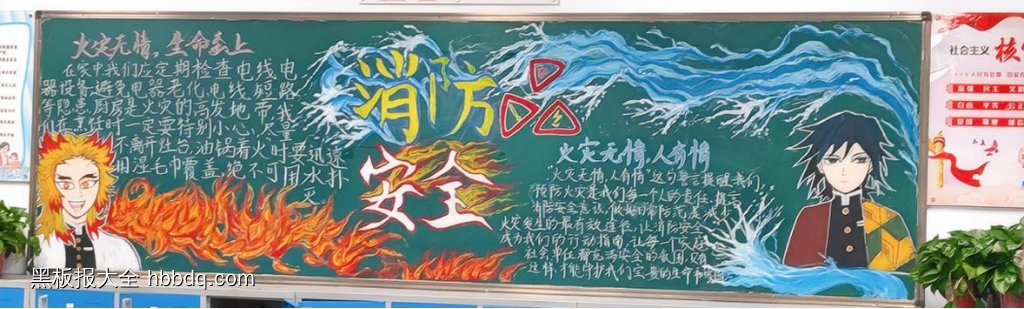 火灾无情，生命至上
在家中我们应定期检查电线电
器设备避免电器老化电线短路
等隐患,厨房是火灾的高发地带,我
们在烹饪时一定要特别小心,尽量
不离开灶台,油锅着火时要迅速
用湿毛巾覆盖,绝不可用水扑
灭
消防
安全
火灾无情,人有情
"火灾无情,人有情"这句警言提醒我们,
预防火灾是我们每一个人的责任,提高
消防安全意识,做好日常防范是减小
火灾发生的最有效途径,让消防安全
成为我们的行动指南,让每一个家庭
社会单位都充满安全的氛围,只有
这样,才能守护我们宝贵的生命和
社会主义 核
富强 民主 文
自由 平等 公正
爱国 敬业
黑板报大全 hbbdq.com